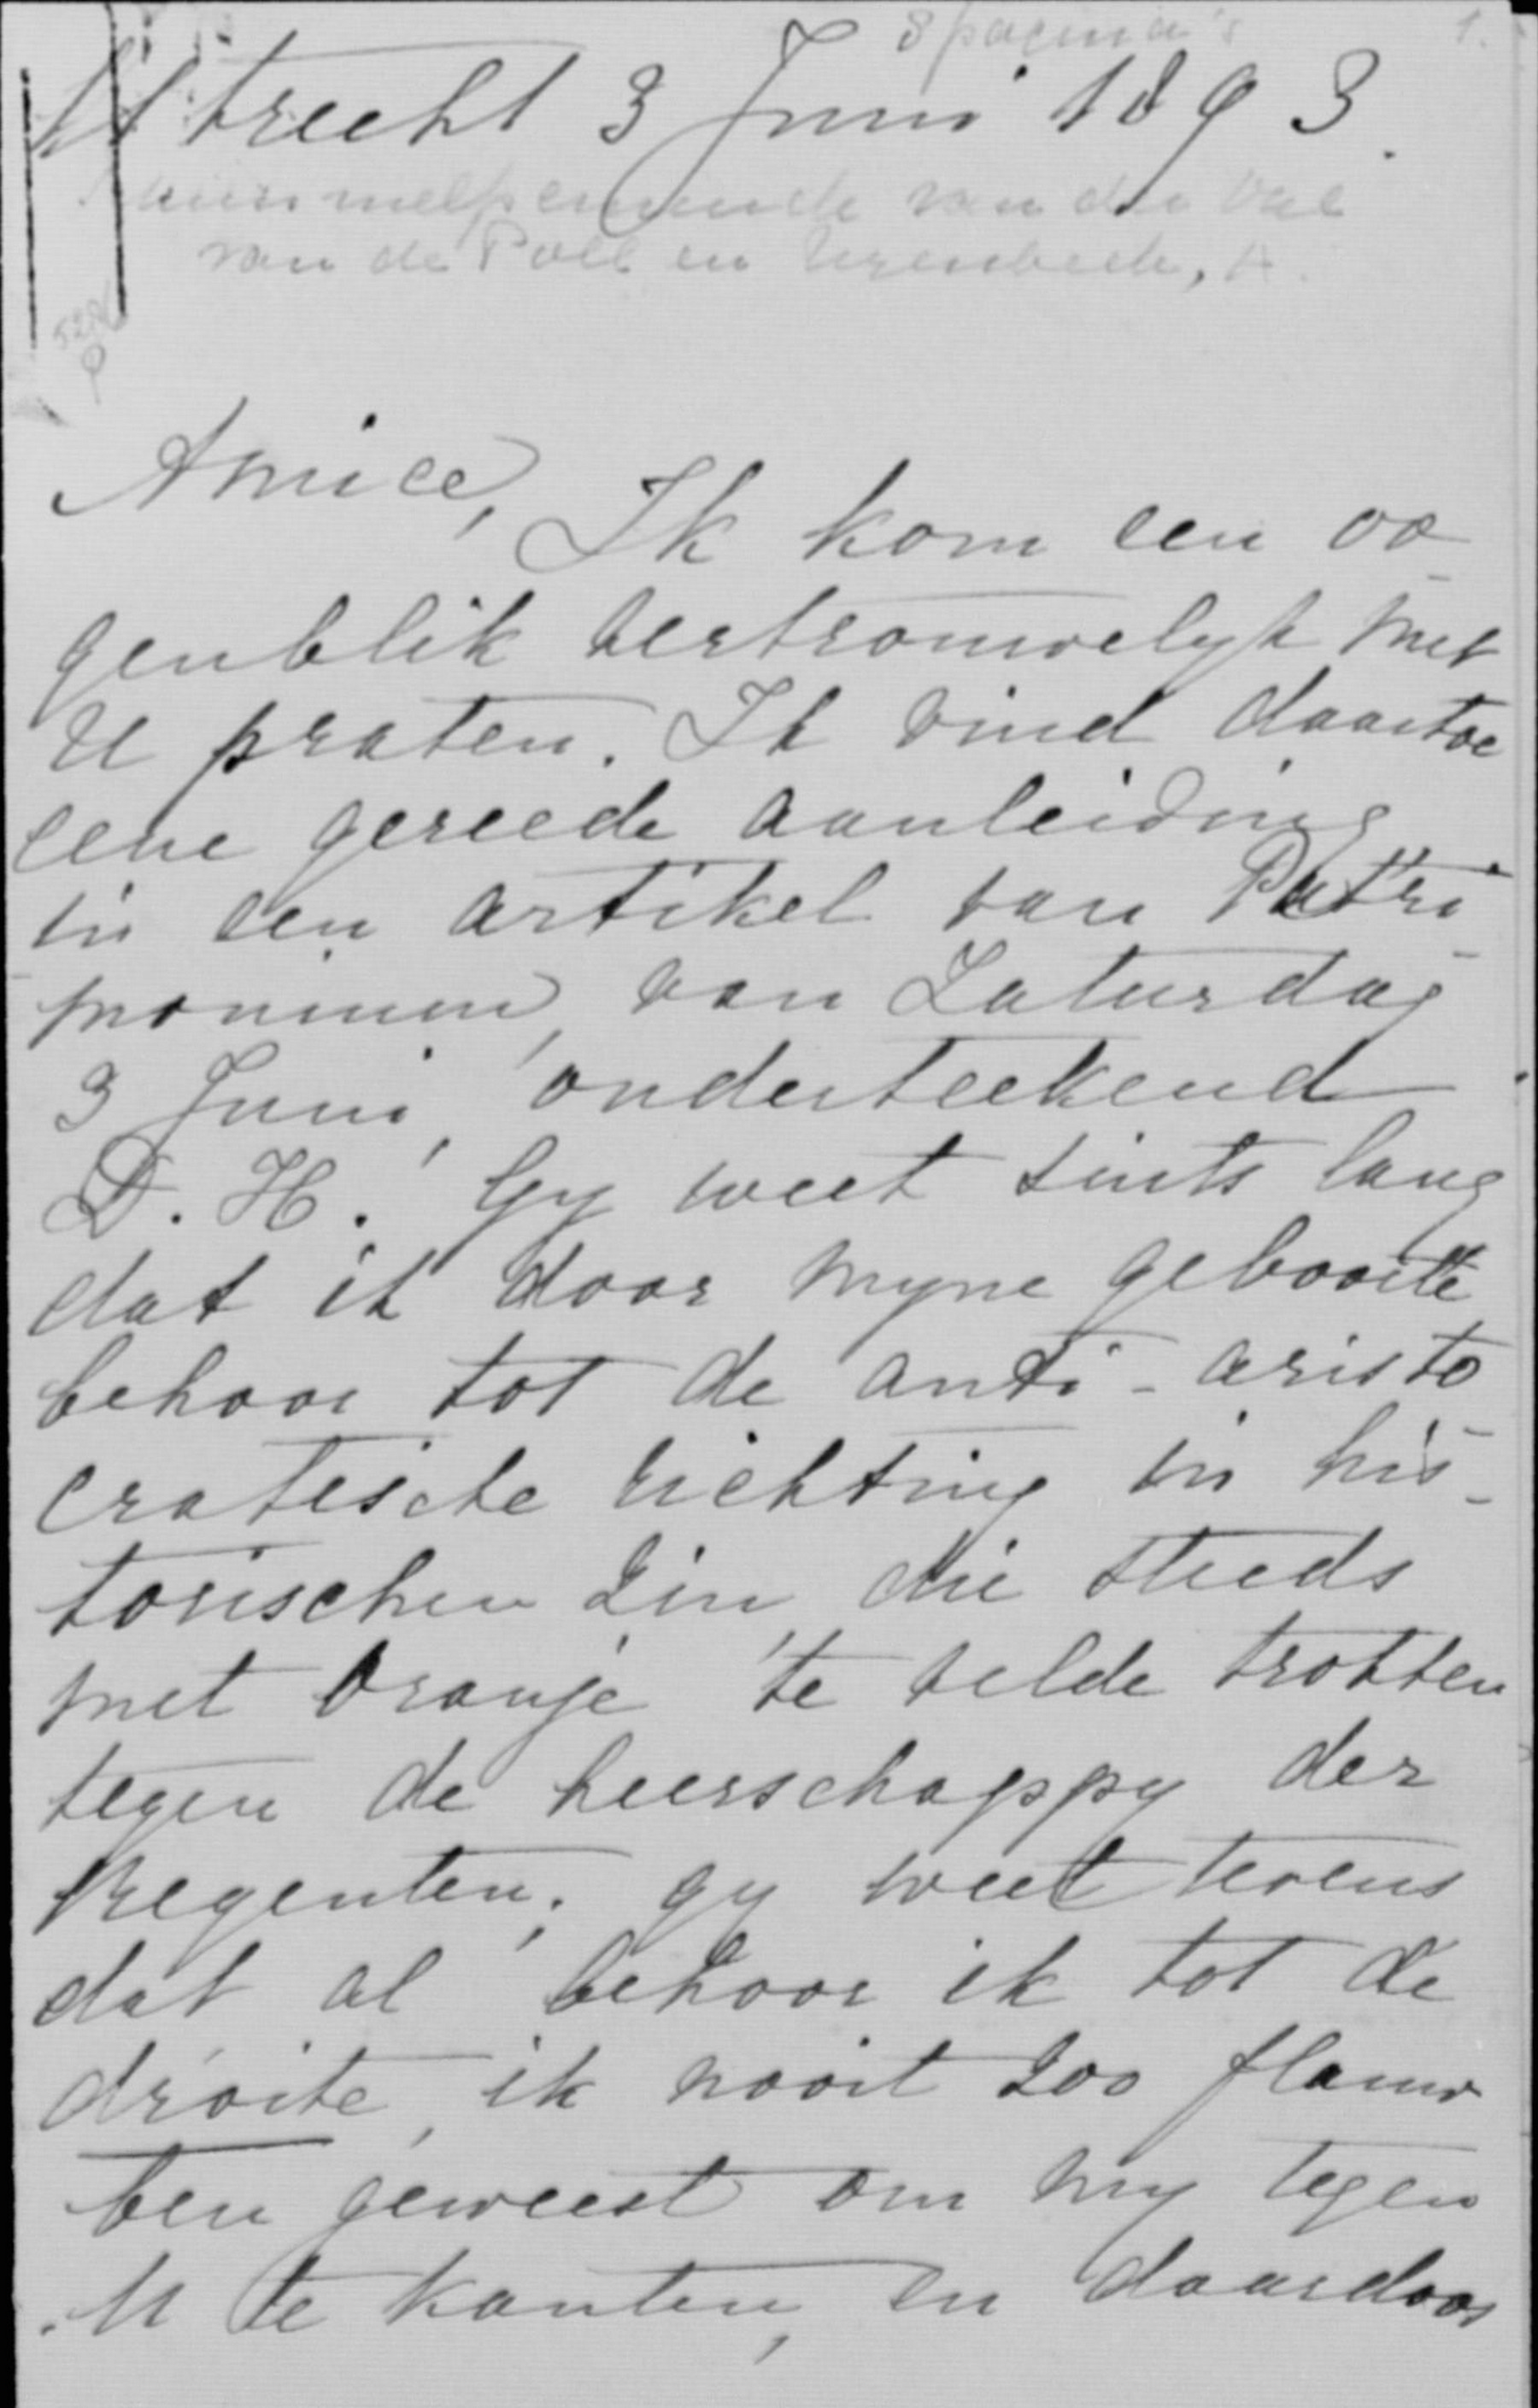 8 pagina's 1.
Utrecht 3 Juni 1893.
van de Poll en
Amice,
Ik kom een oo-
genblik vertrouwelyk met
U praten. Ik vind daartoe
eene gereede aanleiding
in een artikel van Patri-
monium, van Zaturdag
3 Juni, onderteekend
D. H. Gy weet sints lang
dat ik door myne geboorte
behoor tot de anti-aristo-
cratische richting in his-
torischen zin, die steeds
met Oranje te velde trokken
tegen de heerschappy der
Regenten; gy weet tevens
dat al behoor ik tot de
droite, ik nooit zoo flauw
ben geweest om my tegen
U te kanten, en daardoor